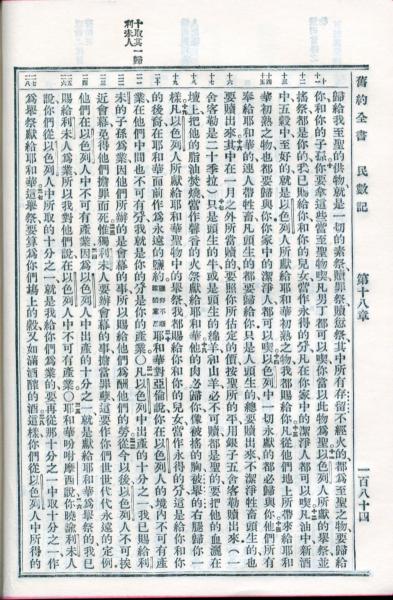 舊約全書 民數記 第十八章 一百八十四
歸給我至聖的供物就是一切的素祭贖罪祭贖愆祭其中所有存留不經火的都爲至聖之物要歸給
你和你的子孫你要拿這些當至聖物喫凡男丁都可以喫你當以此物爲聖以色列人所獻的舉祭並
搖祭都是你的我已賜給你和你的兒女當作永得的分凡在你家中的潔淨人都可以喫凡油中新酒
中五穀中至好的就是以色列人所獻給耶和華初熟之物我都賜給你凡從他們地上所帶來給耶和
華初熟之物也都要歸與你你家中的潔淨人都可以喫以色列中一切永獻的都必歸與你他們所有
奉給耶和華的連人帶牲畜凡頭生的都要歸給你只是人頭生的總要贖出來不潔淨牲畜頭生的也
要贖出來其中在一月之外所當贖的要照你所估定的價按聖所的平用銀子五舍客勒贖出來(一
舍客勒是二十季拉)只是頭生的牛或是頭生的綿羊和山羊必不可贖都是聖的要把他的血灑在
壇上把他的脂油焚燒當作馨香的火祭獻給耶和華他的肉必歸你像被搖的胸被舉的右腿歸你一
樣凡以色列人所獻給耶和華聖物中的舉祭我都賜給你和你的兒女當作永得的分這是給你和你
的後裔在耶和華面前作爲永遠的鹽約耶和華對亞倫說你在以色列人的境內不可有產
業在他們中間也不可有分我就是你的分是你的產業○凡以色列中出產的十分之一我已賜給利
未的子孫爲業因他們所辦的是會幕的事所以賜給他們爲酬他們的勞從今以後以色列人不可挨
近會幕免得他們擔罪而死惟獨利未人要辦會幕的事擔當罪孽這要作你們世世代代永遠的定例
他們在以色列人中不可有產業因爲以色列人中出產的十分之一就是獻給耶和華爲舉祭的我已
賜給利未人爲業所以我對他們說在以色列人中不可有產業○耶和華吩咐摩西說你曉諭利未人
說你們從以色列人中所取的十分之一就是我給你們爲業的要再從那十分之一中取十分之一作
爲舉祭獻給耶和華這舉祭要算爲你們場上的穀又如滿酒醡的酒這樣你們從以色列人中所得的
十取其一歸
利未人